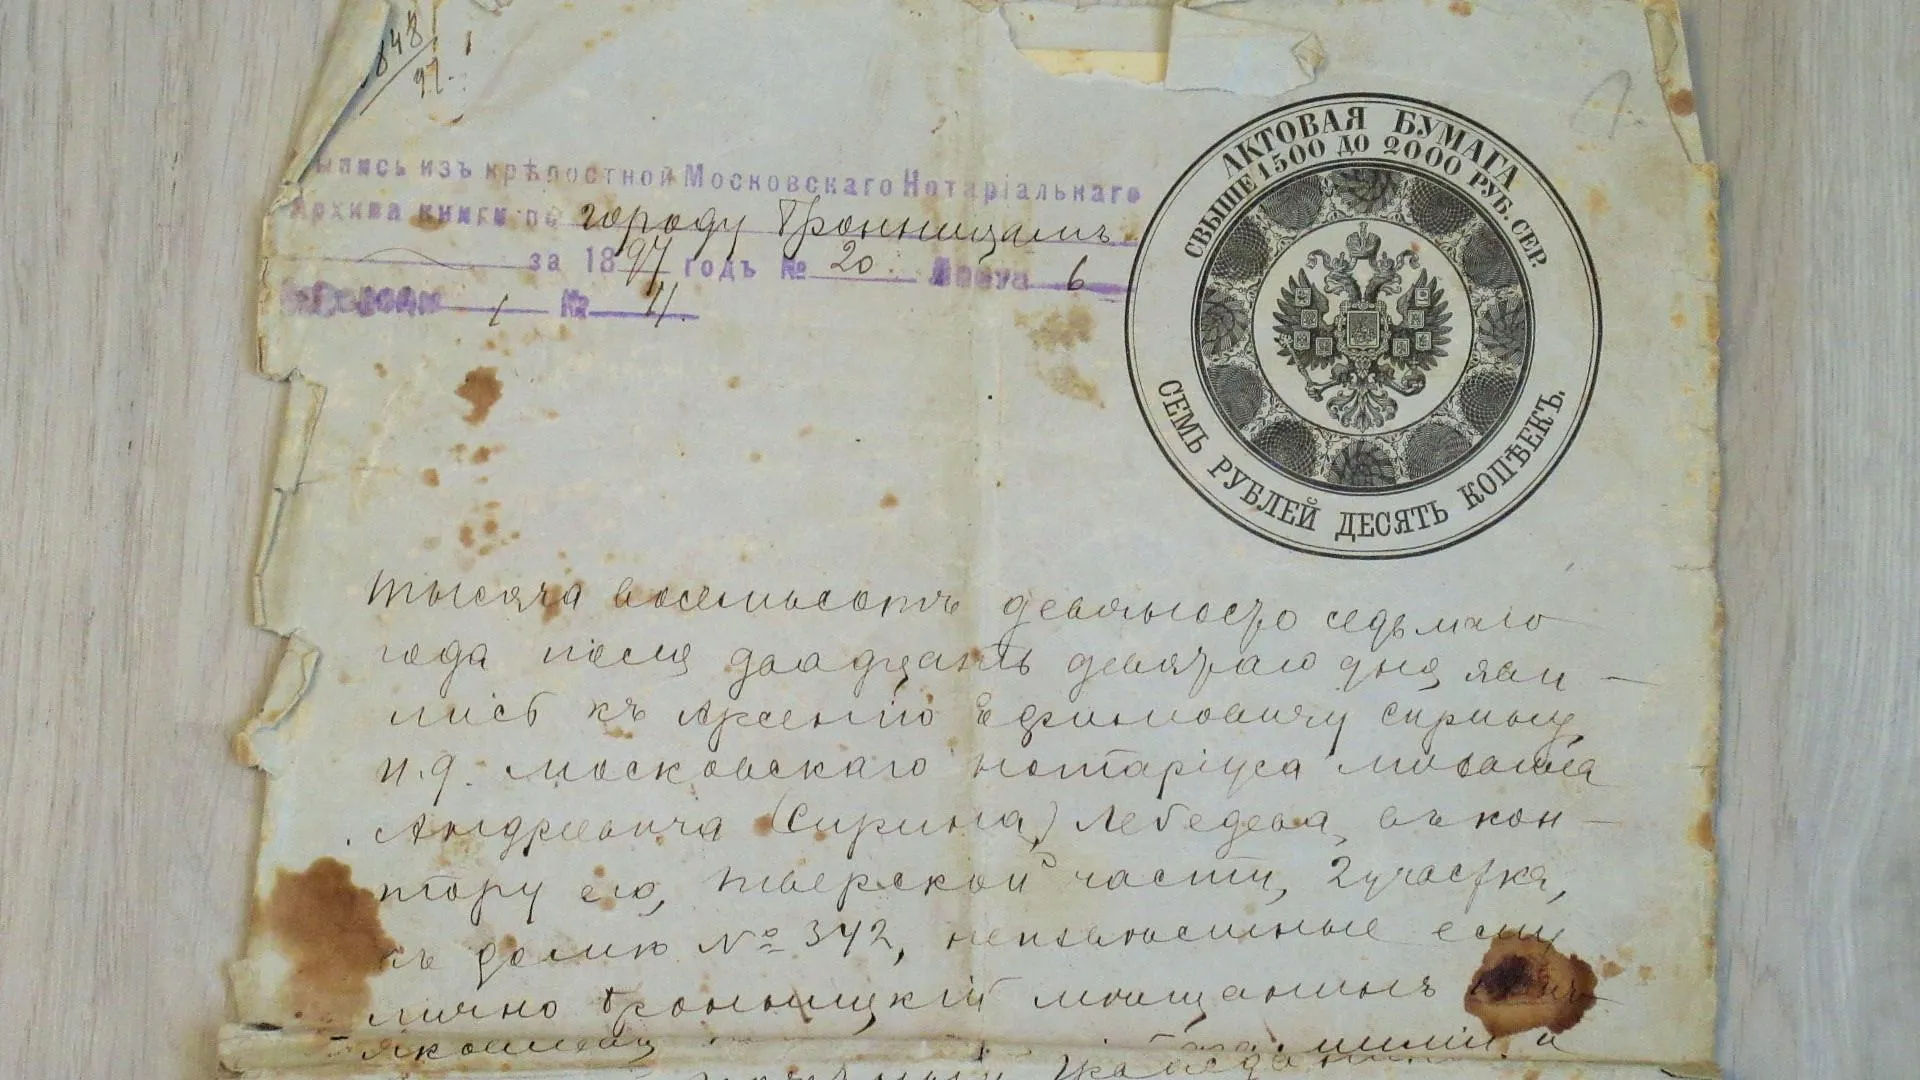 848
97.
Выпись изъ крѣпостной Московскаго Нотаріальнаго
Архива книги по городу Бронницамъ
за 1897 годъ № 20 Листа 6
1 № 4.
АКТОВАЯ БУМАГА
СВЫШЕ 1500 ДО 2000 РУБ. СЕР.
СЕМЬ РУБЛЕЙ ДЕСЯТЬ КОПѢЕКЪ.
Тысяча восемьсотъ девяносто седьмаго
года іюля двадцать девятаго дня яви-
лись къ Арсенію Ефимовичу Сирину,
и. д. Московскаго Нотаріуса Михаила
Андреевича (Сирина) Лебедева, въ кон-
тору его, Тверской части, 2 участка,
въ домѣ № 342, неизвѣстные ему
лично Бронницкій мѣщанинъ